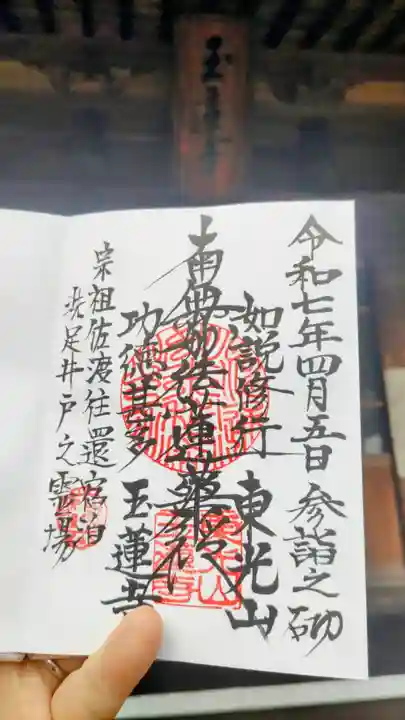 玉蓮寺
令和七年四月五日 参詣之砌
如説修行 東光山
南無妙法蓮華経
功徳甚多 玉蓮寺
宗祖佐渡往還宿泊
洗足井戸之霊場